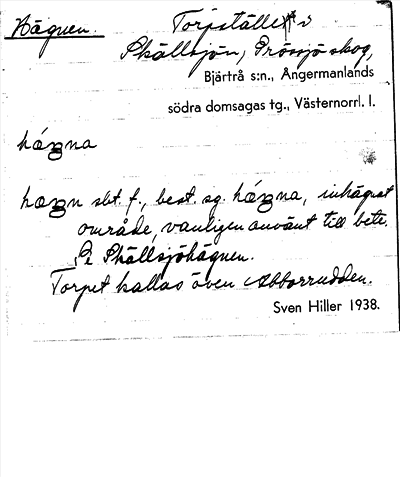 Hägnen. Torpställe i
Skällsjön, Prässjö skog,
Bjärtrå s:n., Ångermanlands
södra domsagas tg., Västernorrl. l.
hágna
hagn sbt. f., best. sg. hágna, inhägnat
område, vanligen använt till bete.
Se Skällsjöhägnen.
Torpet kallas även Abborrudden.
Sven Hiller 1938.